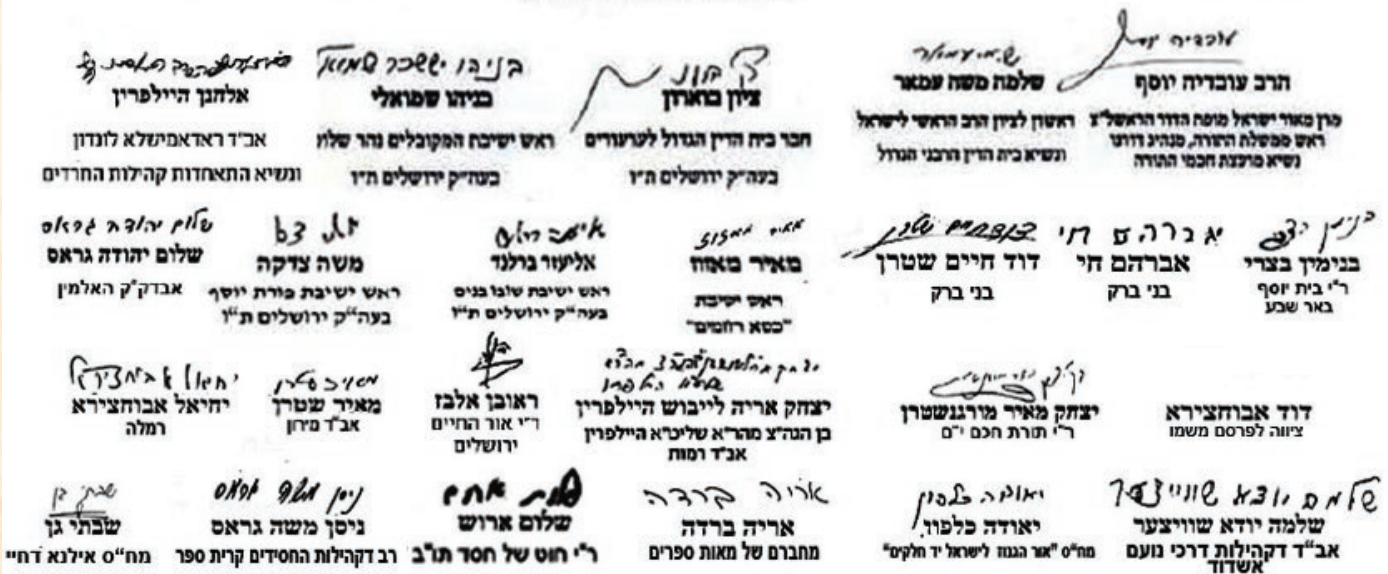 הרב עובדיה יוסף
מרן מאור ישראל מופת הדור הראשל"צ
ראש ממשלת התורה, מנהיג דורנו
נשיא מועצת חכמי התורה
שלמה משה עמאר
ראשון לציון הרב הראשי לישראל
ונשיא בית הדין הרבני הגדול
ציון בוארון
חבר בית הדין הגדול לערעורים
בעה"ק ירושלים ת"ו
בניהו יששכר שמואלי
בניהו שמואלי
ראש ישיבת המקובלים נהר שלום
בעה"ק ירושלים ת"ו
אלחנן היילפרין
אב"ד ראדאמישלא לונדון
ונשיא התאחדות קהילות החרדים
בנימין בצרי
ר"י בית יוסף
באר שבע
אברהם חי
אברהם חי
בני ברק
דוד חיים שטרן
דוד חיים שטרן
בני ברק
מאיר מאזוז
מאיר מאזוז
ראש ישיבת
"כסא רחמים"
אליעזר ברלנד
ראש ישיבת שובו בנים
בעה"ק ירושלים ת"ו
משה צדקה
ראש ישיבת פורת יוסף
בעה"ק ירושלים ת"ו
שלום יהודה גראס
שלום יהודה גראס
אבדק"ק האלמין
דוד אבוחצירא
ציווה לפרסם משמו
יצחק מאיר מורגנשטרן
ר"י תורת חכם י-ם
יצחק אריה לייבוש היילפרין
בן הגה"צ מהר"א שליט"א היילפרין
אב"ד רמות
ראובן אלבז
ר"י אור החיים
ירושלים
מאיר שטרן
מאיר שטרן
אב"ד מירון
יחיאל אבוחצירא
יחיאל אבוחצירא
רמלה
שלמה יודא שווייצער
שלמה יודא שוויצער
אב"ד דקהילות דרכי נועם
אשדוד
יאודה כלפון
יאודה כלפון
מח"ס "אור הגנוז לישראל יד חלקים"
אריה ברדה
אריה ברדה
מחברם של מאות ספרים
שלום ארוש
שלום ארוש
ר"י חוט של חסד תו"ב
ניסן משה גראס
ניסן משה גראס
רב דקהילות החסידים קרית ספר
שבתי גן
מח"ס אילנא דחיי